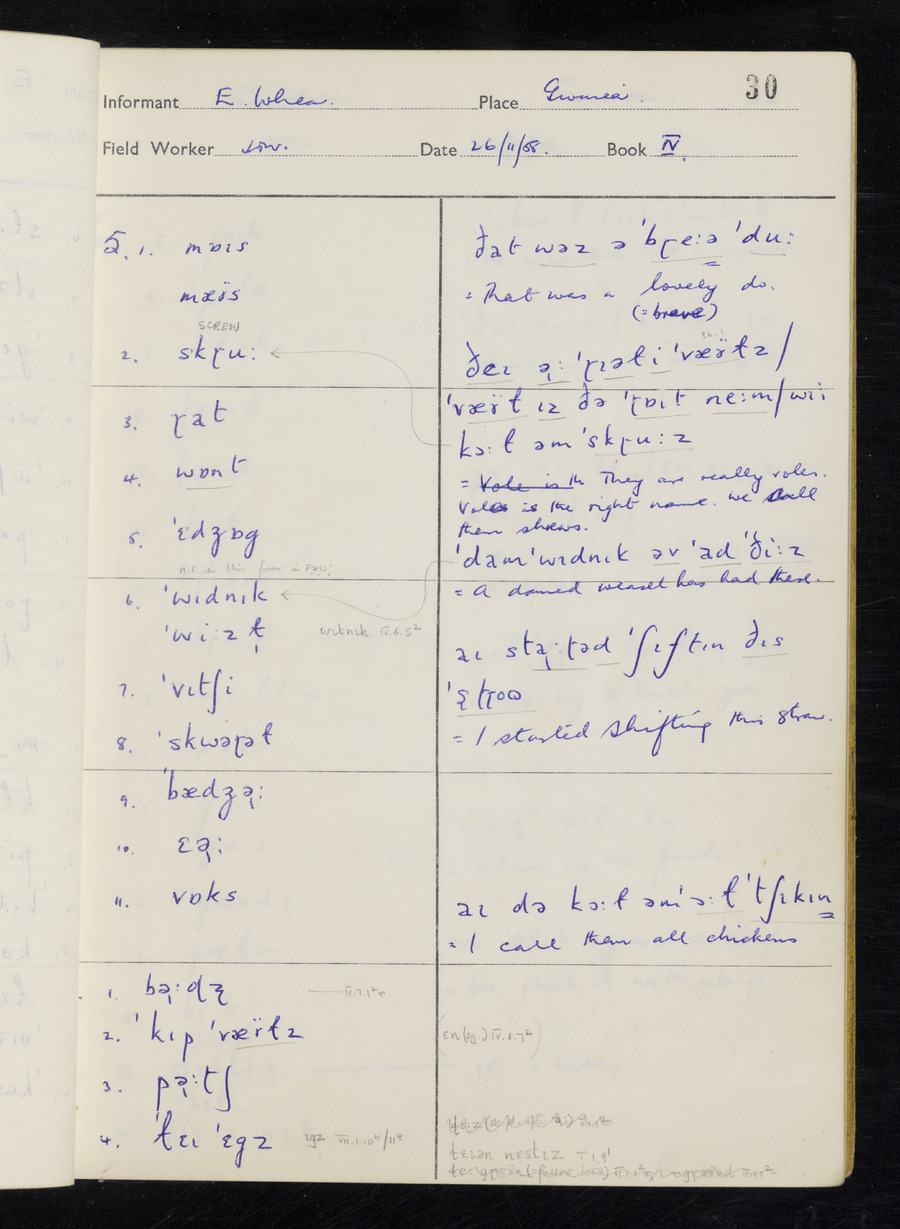 30
Informant E. Whea. Place Gwinear.
Field Worker Date 26/11/58. Book IV.
5. 1. mɒɪs
mæɪ̈s
SCREW
2. skɽuː
3. ɽat
4. wɒnt
5. ˈɛdʒɒg
6. ˈwɪdnɪk
ˈwiːz ɫ̩
wɪtnɪk IV.6.5²
7. ˈvɪtʃi
8. ˈskwəɽəɫ
9. ˈbædʒəɽː
10. ɛəɽː
11. vɒks
1. bəɽːdʐ
IV.7.1²
2. ˈkɪp ˈvæɪ̈ɫz
3. pəɽːtʃ
4. ˈɫɛɪ ˈɛgz
ɪgz VII.1.10⁴/11⁴
ðat wəz ə ˈbɽeːə ˈduː
= That was a lovely do.
(= brave)
ðeɪ əɽː ˈɽɪəɫi ˈvæɪ̈ɫz /
ˈvæɪ̈ɫ ɪz ðə ˈɽɒɪt neːm/wiː
kɔːɫ əm ˈskɽuːz
= Vole is th They are really voles.
Voles is the right name. We call
them shrews.
ˈdamˈwɪdnɪk əv ˈad ˈðiːz
= A damned weasel has had these.
aɪ staɽːʈəd ˈʃɪftɪn ðɪs
= I started shifting this straw.
aɪ də kɔːɫ əmˈɔːɫ ˈtʃɪkɪn
= I call them all chickens
ɛn (sg.) IV.6.7²
ɫɛɪən nɛstɪz